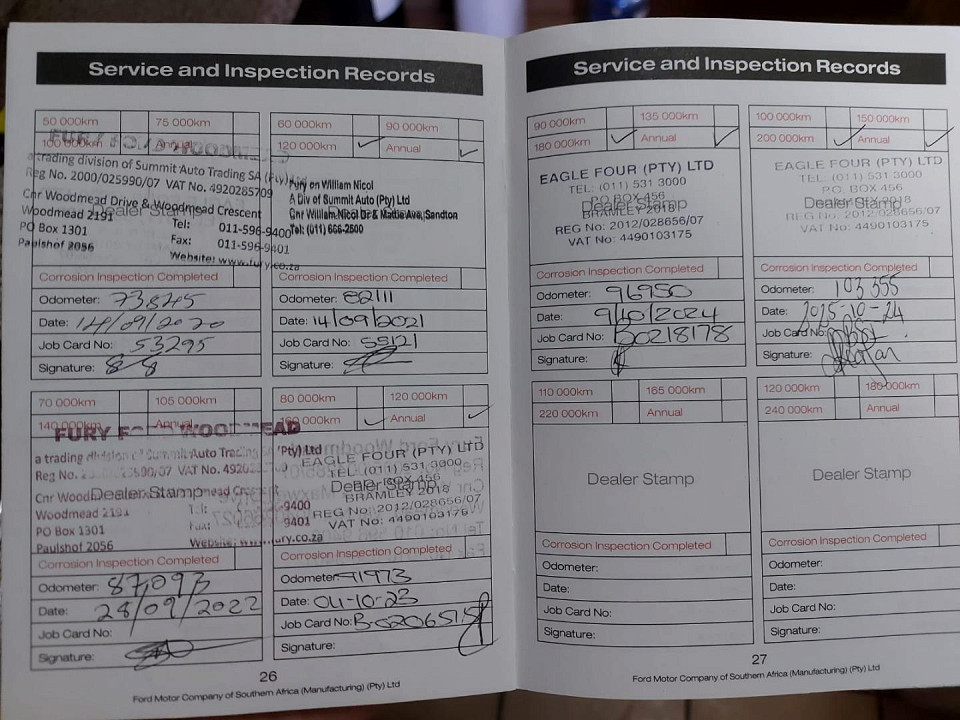 Service and Inspection Records
50 000km 75 000km
100 000km Annual
FURY FORD WOODMEAD
a trading division of Summit Auto Trading SA (Pty) Ltd
Reg No. 2000/025990/07 VAT No. 4920285709
Cnr Woodmead Drive & Woodmead Crescent
Dealer Stamp
Woodmead 2191 Tel: 011-596-9400
PO Box 1301 Fax: 011-596-9401
Paulshof 2056 Website: www.fury.co.za
Corrosion Inspection Completed
Odometer: 73845
Date: 14/09/2020
Job Card No: 53295
Signature:
60 000km 90 000km
120 000km ✓ Annual ✓
Fury on William Nicol
A Div of Summit Auto (Pty) Ltd
Cnr William Nicol Dr & Mattie Ave, Sandton
Dealer Stamp
Tel: (011) 666-2500
Corrosion Inspection Completed
Odometer: 82111
Date: 14/09/2021
Job Card No: 55121
Signature:
70 000km 105 000km
140 000km Annual
FURY FORD WOODMEAD
a trading division of Summit Auto Trading (Pty) Ltd
Reg No. 90/07 VAT No. 4920
Cnr Woodmead Cres
Dealer Stamp
Woodmead 2191 Tel: 9400
PO Box 1301 Fax: 9401
Paulshof 2056 Website: www.fury.co.za
Corrosion Inspection Completed
Odometer: 87,093
Date: 28/09/2022
Job Card No:
Signature:
80 000km 120 000km
160 000km ✓ Annual ✓
EAGLE FOUR (PTY) LTD
TEL: (011) 531 3000
P.O. BOX 456
Dealer Stamp
BRAMLEY 2018
REG No: 2012/028656/07
VAT No: 4490103175
Corrosion Inspection Completed
Odometer: 91973
Date: 04-10-23
Job Card No: B0206515
Signature:
26
Ford Motor Company of Southern Africa (Manufacturing) (Pty) Ltd
Service and Inspection Records
90 000km 135 000km
180 000km ✓ Annual ✓
EAGLE FOUR (PTY) LTD
TEL: (011) 531 3000
P.O. BOX 456
Dealer Stamp
BRAMLEY 2018
REG No: 2012/028656/07
VAT No: 4490103175
Corrosion Inspection Completed
Odometer: 96950
Date: 9/10/2024
Job Card No: B0218178
Signature:
100 000km 150 000km
200 000km ✓ Annual ✓
EAGLE FOUR (PTY) LTD
TEL: (011) 531 3000
P.O. BOX 456
Dealer Stamp
BRAMLEY 2018
REG No: 2012/028656/07
VAT No: 4490103175
Corrosion Inspection Completed
Odometer: 103 355
Date: 2025-10-24
Job Card No:
Signature:
110 000km 165 000km
220 000km Annual
Dealer Stamp
Corrosion Inspection Completed
Odometer:
Date:
Job Card No:
Signature:
120 000km 180 000km
240 000km Annual
Dealer Stamp
Corrosion Inspection Completed
Odometer:
Date:
Job Card No:
Signature:
27
Ford Motor Company of Southern Africa (Manufacturing) (Pty) Ltd